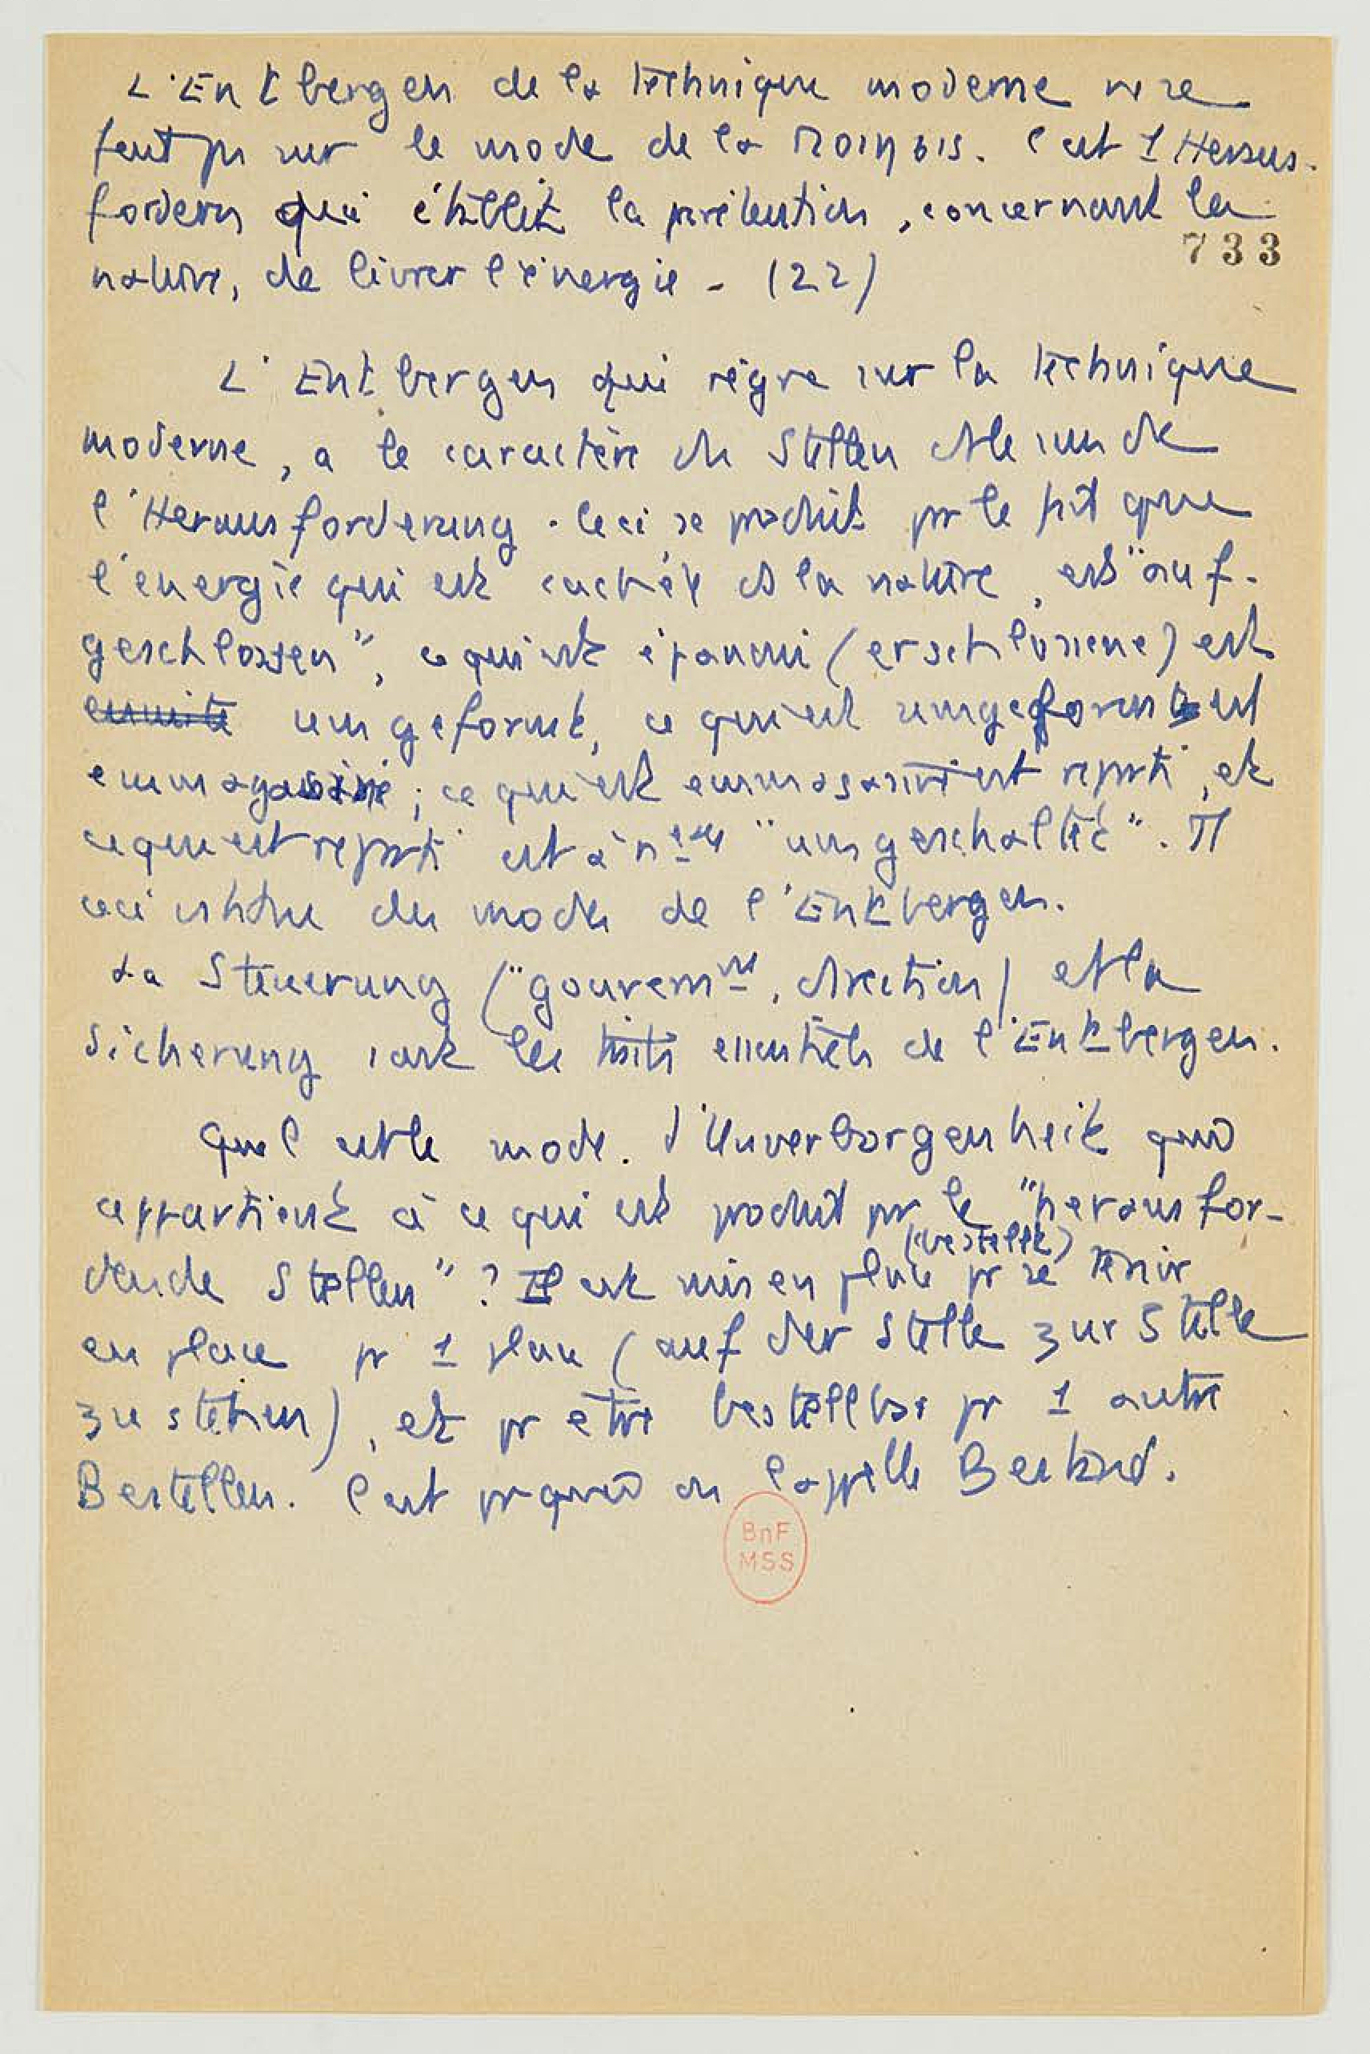 L'Entbergen de la technique moderne ne se
fait pas sur le mode de la ποίησις. C'est 1 Heraus-
fordern qui établit la prétention, concernant la
733
nature, de livrer l'énergie - (22)
L'Entbergen qui règne sur la technique
moderne, a le caractère du Stellen au sens de
l'Herausforderung. Ceci se produit pr le fait que
l'énergie qui est cachée ds la nature, est "auf-
geschlossen", ce qui est épanoui (erschlossene) est
ensuite umgeformt, ce qui est umgeformt est
emmagasiné ; ce qui est emmagasiné est reparti, et
ce qui est reparti est à nveau "umgeschaltet". Tt
ceci est des modes de l'Entbergen.
La Steuerung ("gouvernmt, direction) et la
Sicherung sont les traits essentiels de l'Entbergen.
Quel est le mode d'Unverborgenheit qui
appartient à ce qui est produit pr le "herausfor-
dende Stellen" ? Il est mis en place (bestellt) pr se tenir
en place pr 1 place (auf der Stelle zur Stelle
zu stehen), et pr etre bestellbar pr 1 autre
Bestellen. C'est pr quoi on l'appelle Bestand.
BnF
MSS